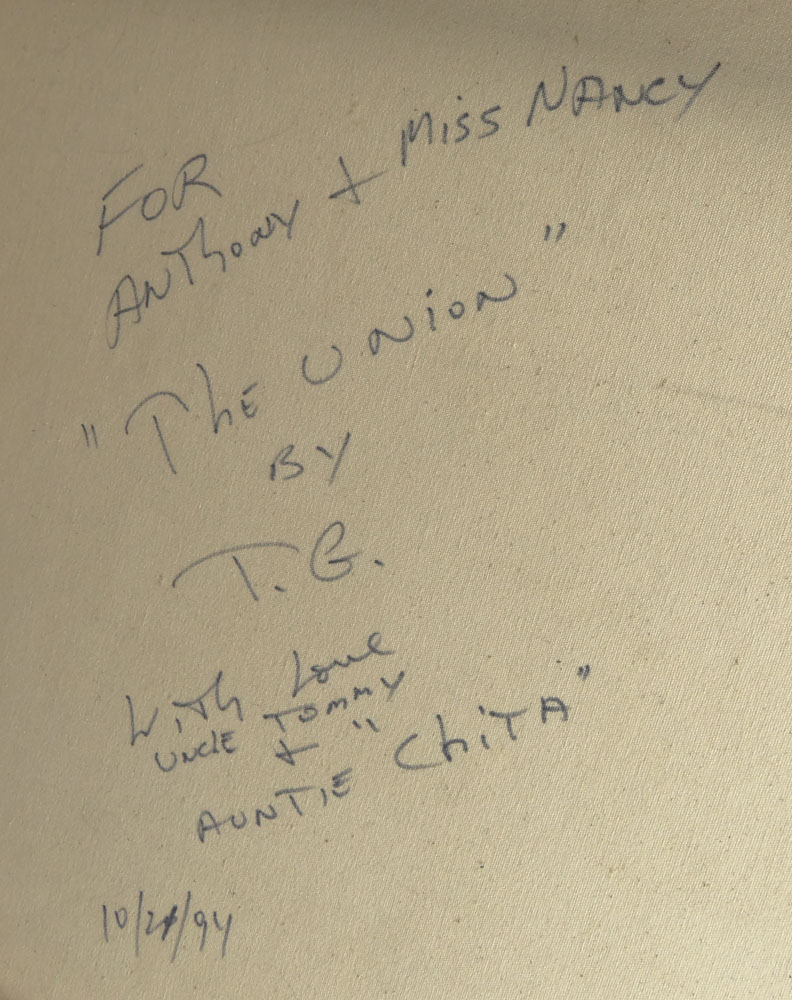 FOR
ANThony + Miss NANCY
"The UNiON"
BY
T.G.
With Love
UNCLE TOMMY
+ "
AUNTIE ChiTA"